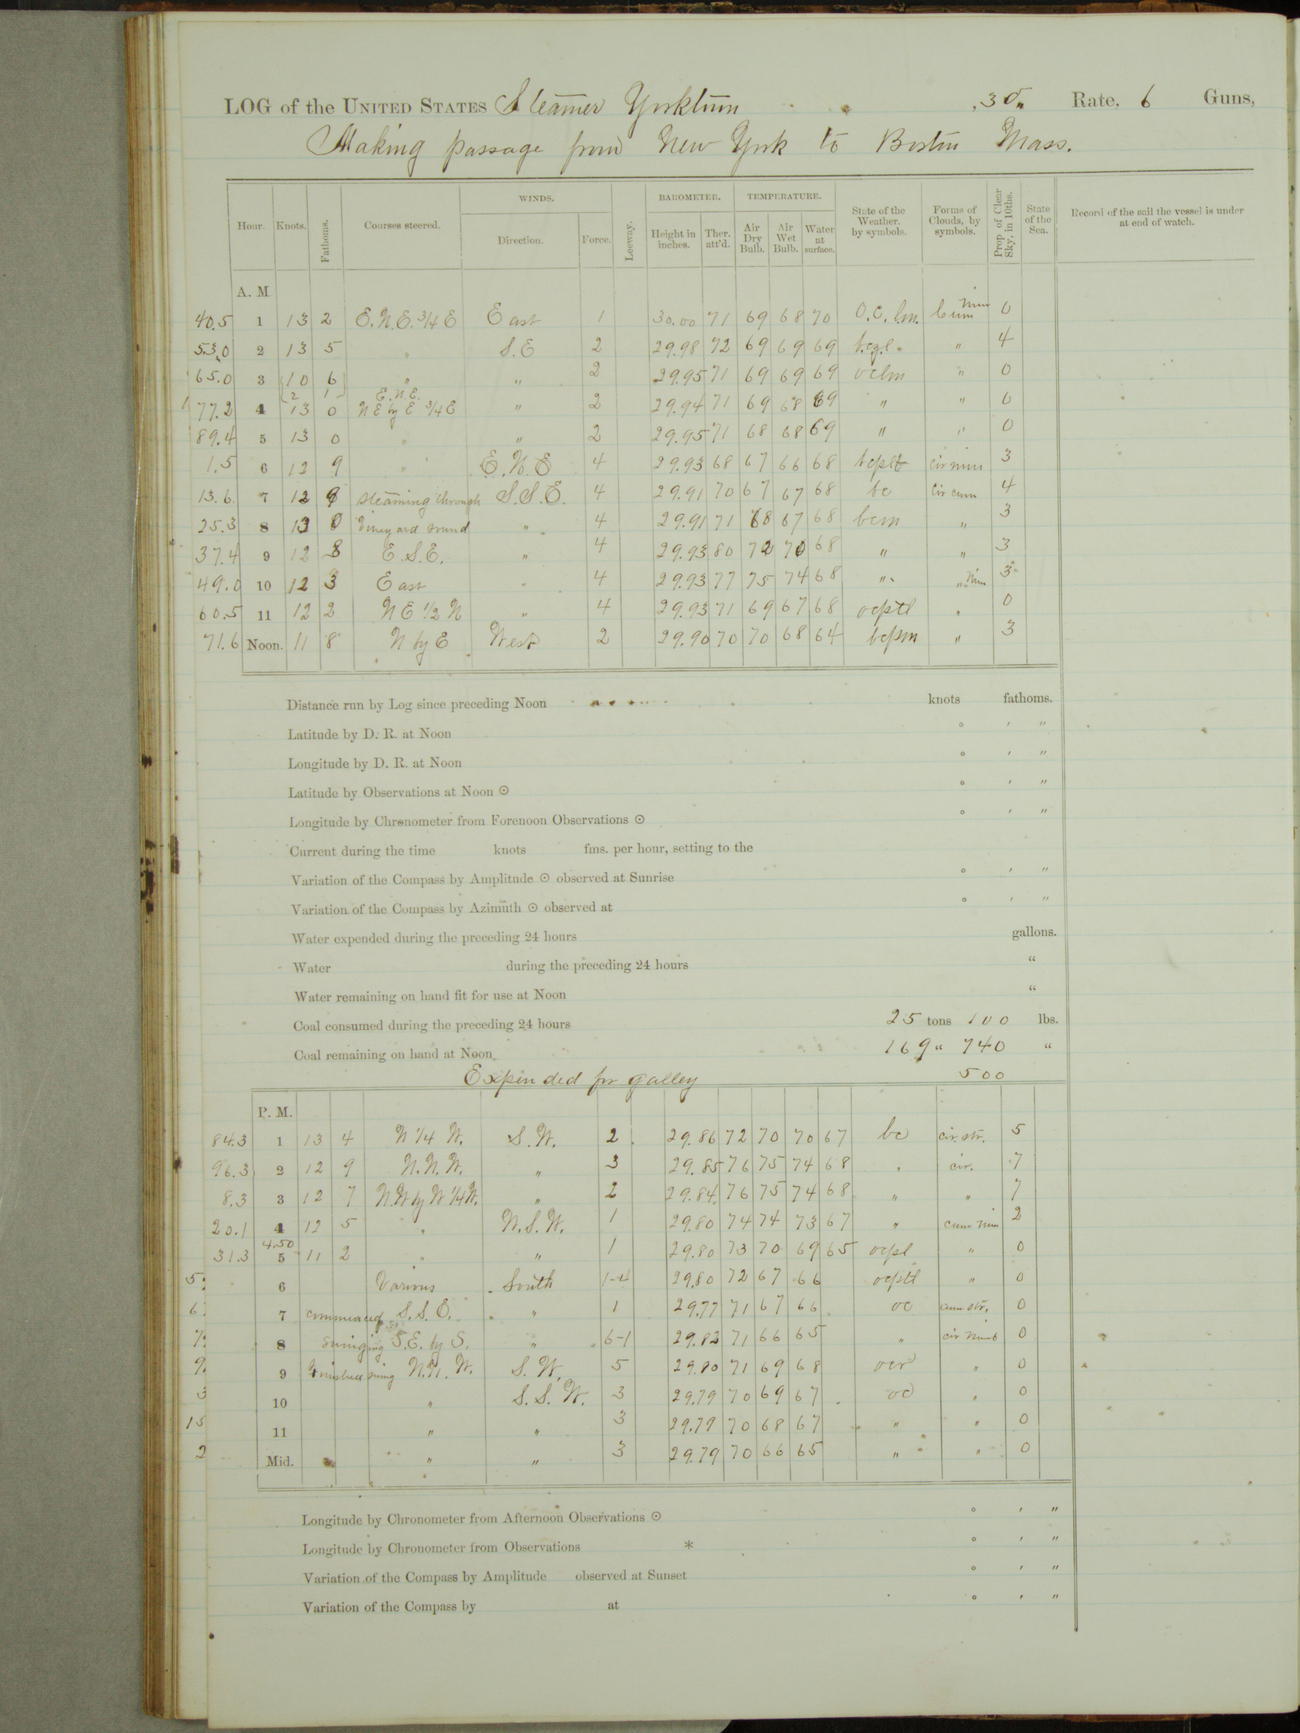 LOG of the UNITED STATES Steamer Yorktown , 3d Rate, 6 Guns,
Making passage from New York to Boston Mass.
Hour. Knots. Fathoms. Courses steered. WINDS. Direction. Force. Leeway. BAROMETER. Height in inches. Ther. att'd. TEMPERATURE. Air Dry Bulb. Air Wet Bulb. Water at surface. State of the Weather, by symbols. Forms of Clouds, by symbols. Prop. of Clear Sky, in 10ths. State of the Sea. Record of the sail the vessel is under at end of watch.
A. M.
40.5 1 13 2 E.N.E. 3/4 E East 1 30.00 71 69 68 70 O.C.l.m. Cum nim 0
53.0 2 13 5 " S.E 2 29.98 72 69 69 69 " 4
65.0 3 10 6 " " 2 29.95 71 69 69 69 oclm " 0
2 1 E.N.E.
77.2 4 13 0 NE by E 3/4 E " 2 29.94 71 69 68 69 " " 0
89.4 5 13 0 " " 2 29.95 71 68 68 69 " " 0
1.5 6 12 9 " 4 29.93 68 67 66 68 bcptl cir nim 3
13.6 7 12 9 steaming through S.S.E. 4 29.91 70 67 67 68 bc Cir cum 4
25.3 8 13 0 Vineyard sound " 4 29.91 71 68 67 68 bcm " 3
37.4 9 12 8 E.S.E. " 4 29.93 80 72 70 68 " " 3
49.0 10 12 3 East " 4 29.93 77 75 74 68 " " Nim 3
60.5 11 12 2 NE 1/2 N " 4 29.93 71 69 67 68 ocptl " 0
71.6 Noon. 11 8 N by E West 2 29.90 70 70 68 64 bcpm " 3
Distance run by Log since preceding Noon knots fathoms.
Latitude by D. R. at Noon ° ' "
Longitude by D. R. at Noon ° ' "
Latitude by Observations at Noon ☉ ° ' "
Longitude by Chronometer from Forenoon Observations ☉ ° ' "
Current during the time knots fms. per hour, setting to the
Variation of the Compass by Amplitude ☉ observed at Sunrise ° ' "
Variation of the Compass by Azimuth ☉ observed at ° ' "
Water expended during the preceding 24 hours gallons.
Water during the preceding 24 hours "
Water remaining on hand fit for use at Noon "
Coal consumed during the preceding 24 hours 25 tons 100 lbs.
Coal remaining on hand at Noon 169 " 740 "
Expended for galley 500
P. M.
84.3 1 13 4 N 1/4 W. S.W. 2 29.86 72 70 70 67 bc cir. str. 5
96.3 2 12 9 N.N.W. " 3 29.85 76 75 74 68 " cir. 7
8.3 3 12 7 N.W by W 1/4 W. " 2 29.84 76 75 74 68 " " 7
20.1 4 12 5 " W.S.W. 1 29.80 74 74 73 67 " cum nim 2
4.50
31.3 5 11 2 " " 1 29.80 73 70 69 65 ocpl " 0
6 Various South 1-4 29.80 72 67 66 ocptl " 0
7 commenced S.S.E. " 1 29.77 71 67 66 oc cum str. 0
8 swinging S.E. by S. " 6-1 29.82 71 66 65 " cir nimb 0
9 N.N.W. S.W. 5 29.80 71 69 68 ocr " 0
10 " S.S.W. 3 29.79 70 69 67 oc " 0
11 " " 3 29.79 70 68 67 " " 0
Mid. " " 3 29.79 70 66 65 " " 0
Longitude by Chronometer from Afternoon Observations ☉ ° ' "
Longitude by Chronometer from Observations * ° ' "
Variation of the Compass by Amplitude observed at Sunset ° ' "
Variation of the Compass by at ° ' "